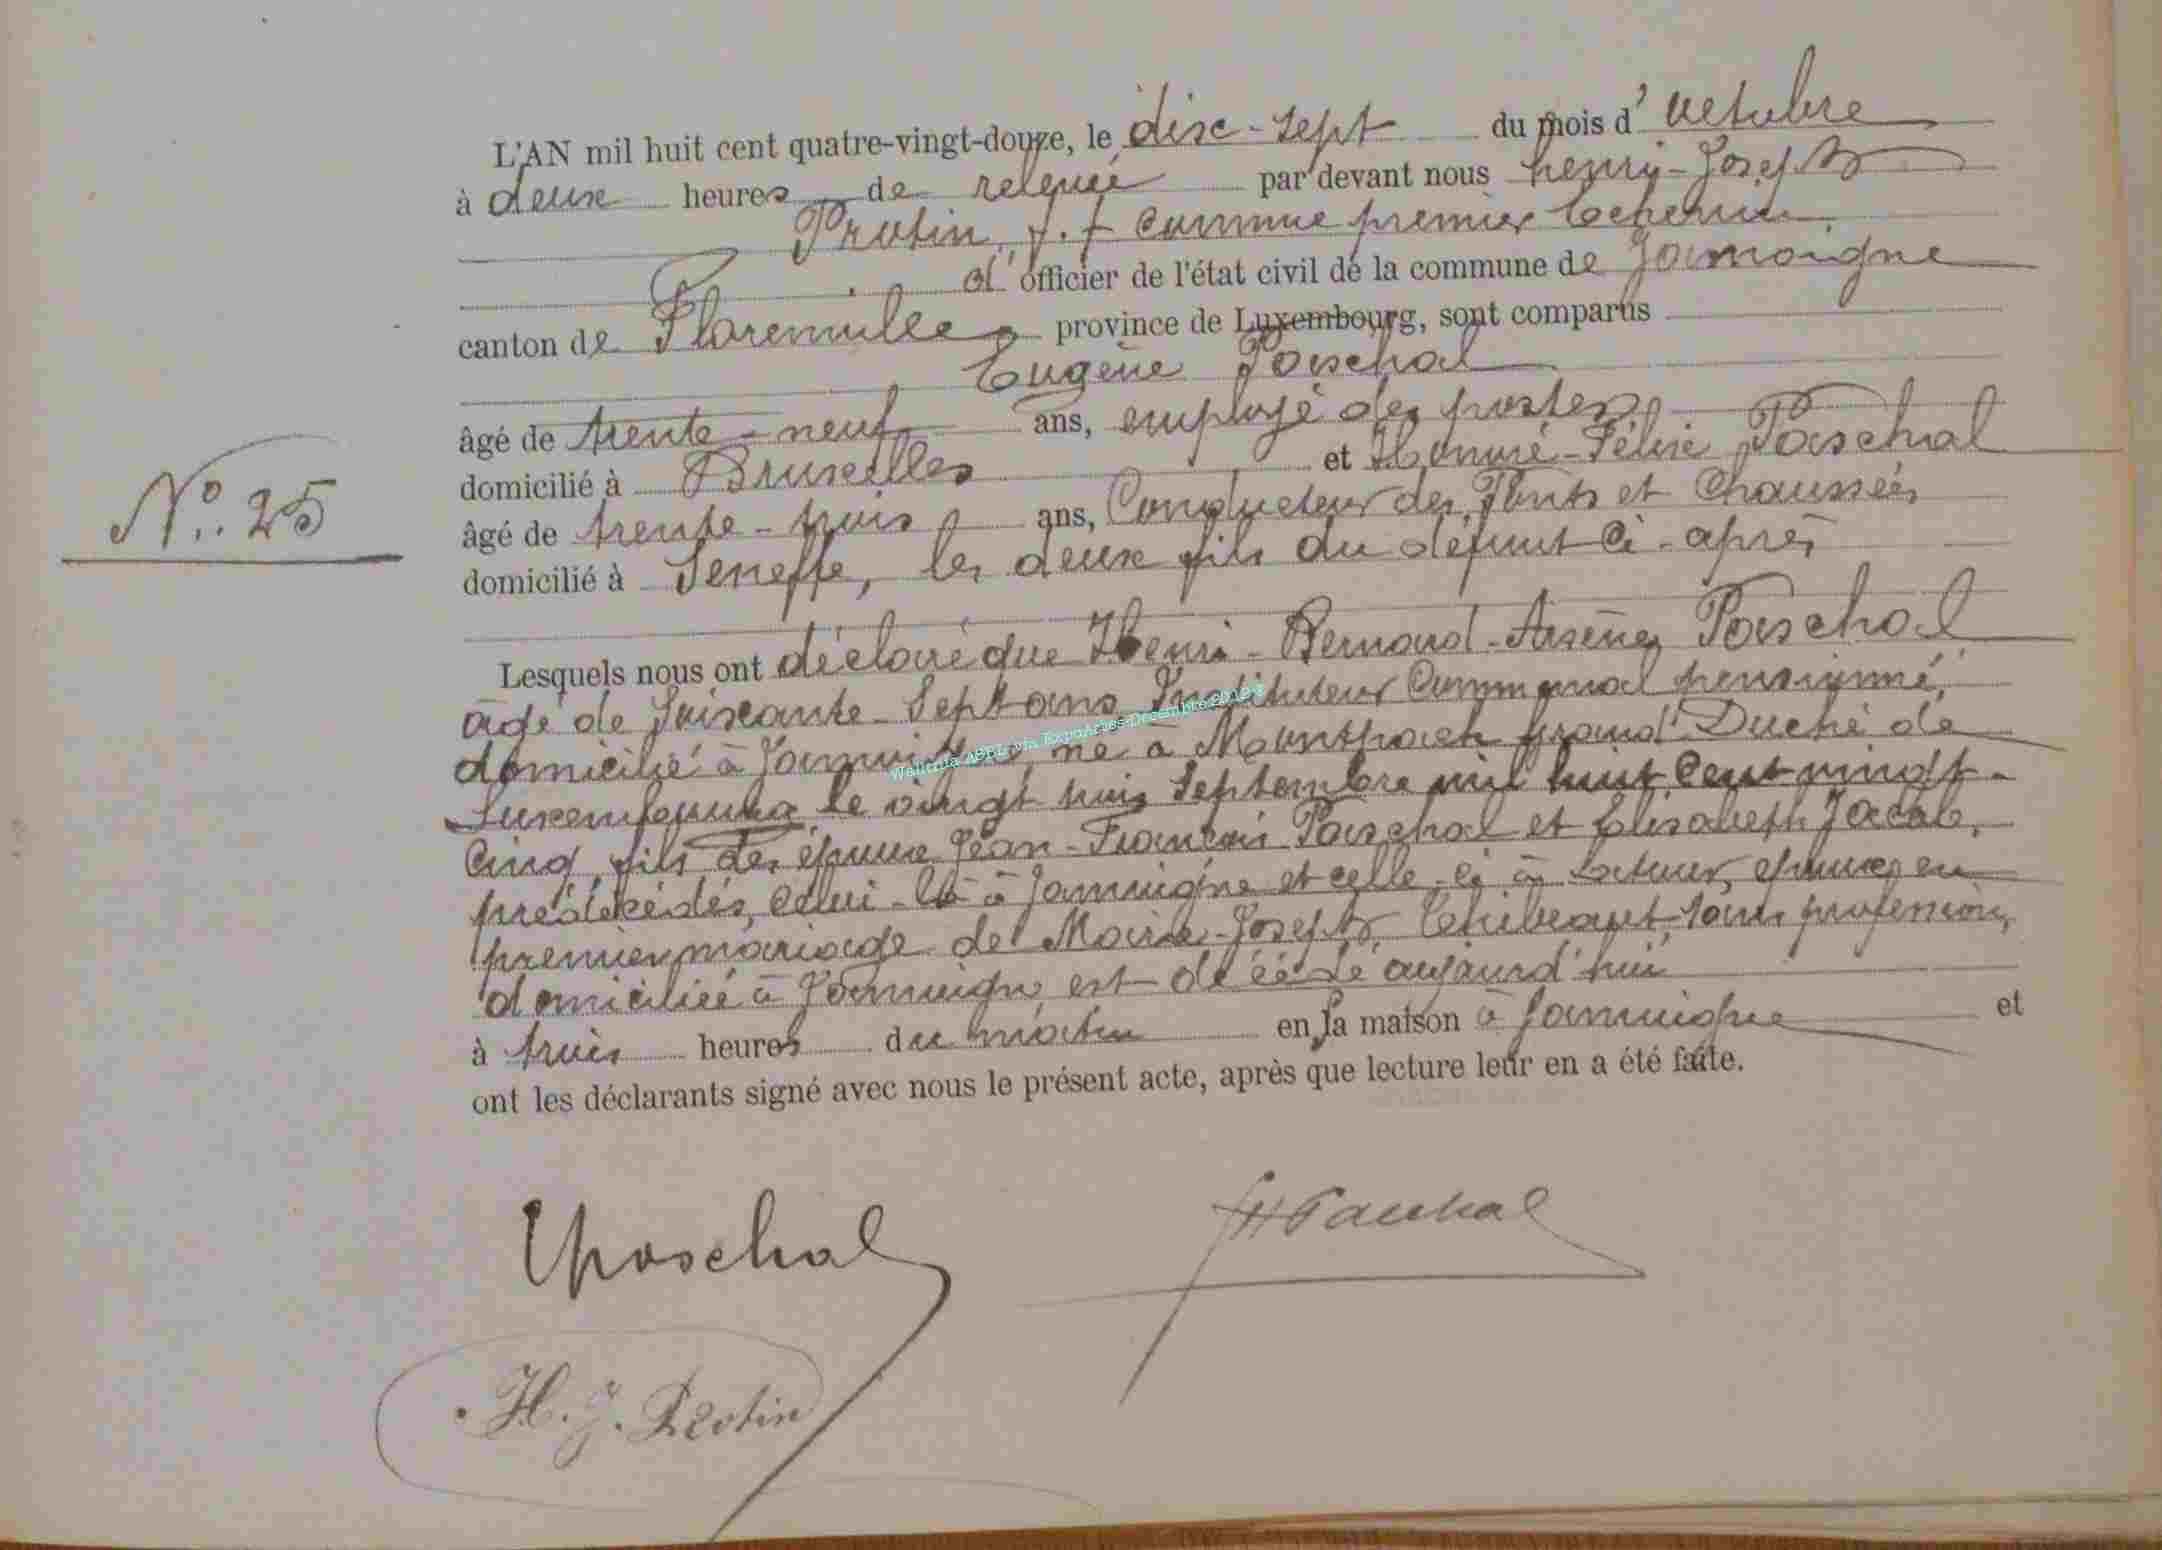 L'AN mil huit cent quatre-vingt-douze, le disc-sept du mois d' octobre
à deux heures de relevée par devant nous henry-Joseph
Protin, f.f comme premier Echevin
d' officier de l'état civil de la commune de Jamoigne
canton de Florenville province de Luxembourg, sont comparus
Eugène Paschal
âgé de trente-neuf ans, employé des postes
domicilié à Bruxelles et Honoré-Félix Paschal
N° 25
âgé de trente-trois ans, Conducteur des Ponts et Chaussées
domicilié à Seneffe, les deux fils du défunt ci-après
Lesquels nous ont déclaré que Henri-Bernard-Arsène Paschal
âgé de Soixante-Sept ans, Instituteur Communal pensionné,
domicilié à Jamoigne, né à Grand Duché de
Wallonia ASBL via ExpoActes-Décembre
Luxembourg le vingt trois Septembre mil huit Cent vingt-
Cinq, fils des époux Jean-François Paschal et Elisabeth Jacob,
prédécédés, celui-là à Jamoigne et celle-ci à époux en
premier mariage de Marie-Joseph, sans profession,
domiciliée à Jamoigne, est décédé aujourd'hui
à trois heures du matin en la maison à Jamoigne et
ont les déclarants signé avec nous le présent acte, après que lecture leur en a été faite.
EPaschal
FHPaschal
H. J. Protin